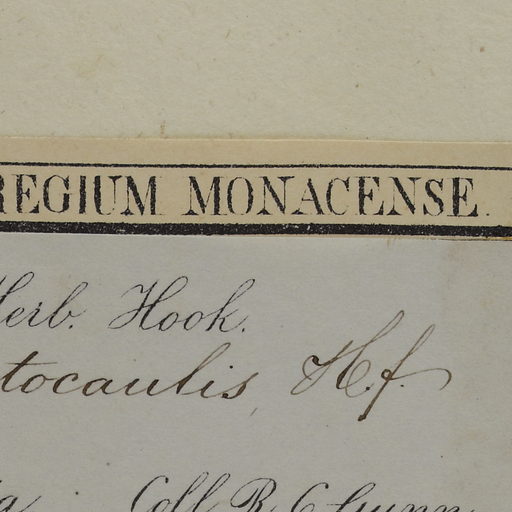 REGIUM MONACENSE.
Herb. Hook.
tocaulis, H.f.
Coll. R. C. Gunn